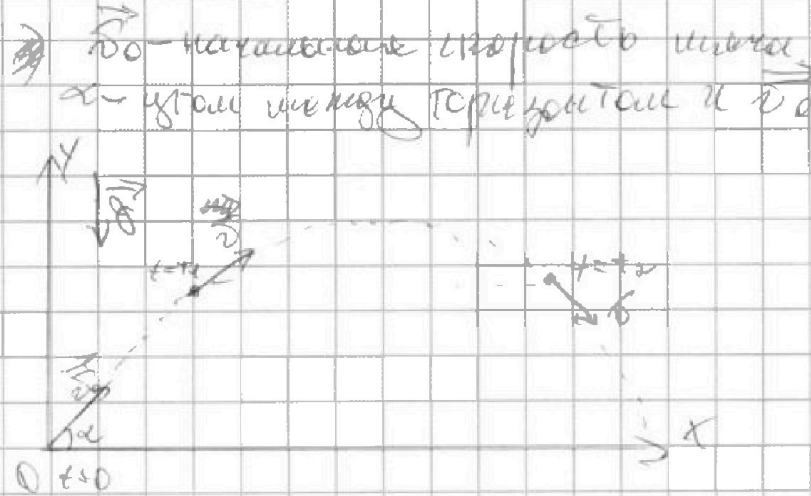 v₀ - начальная скорость мяча,
α - угол между горизонтом и v₀
Y
g
v
t=t₁
t=t₂
v
v₀
α
X
0 t=0